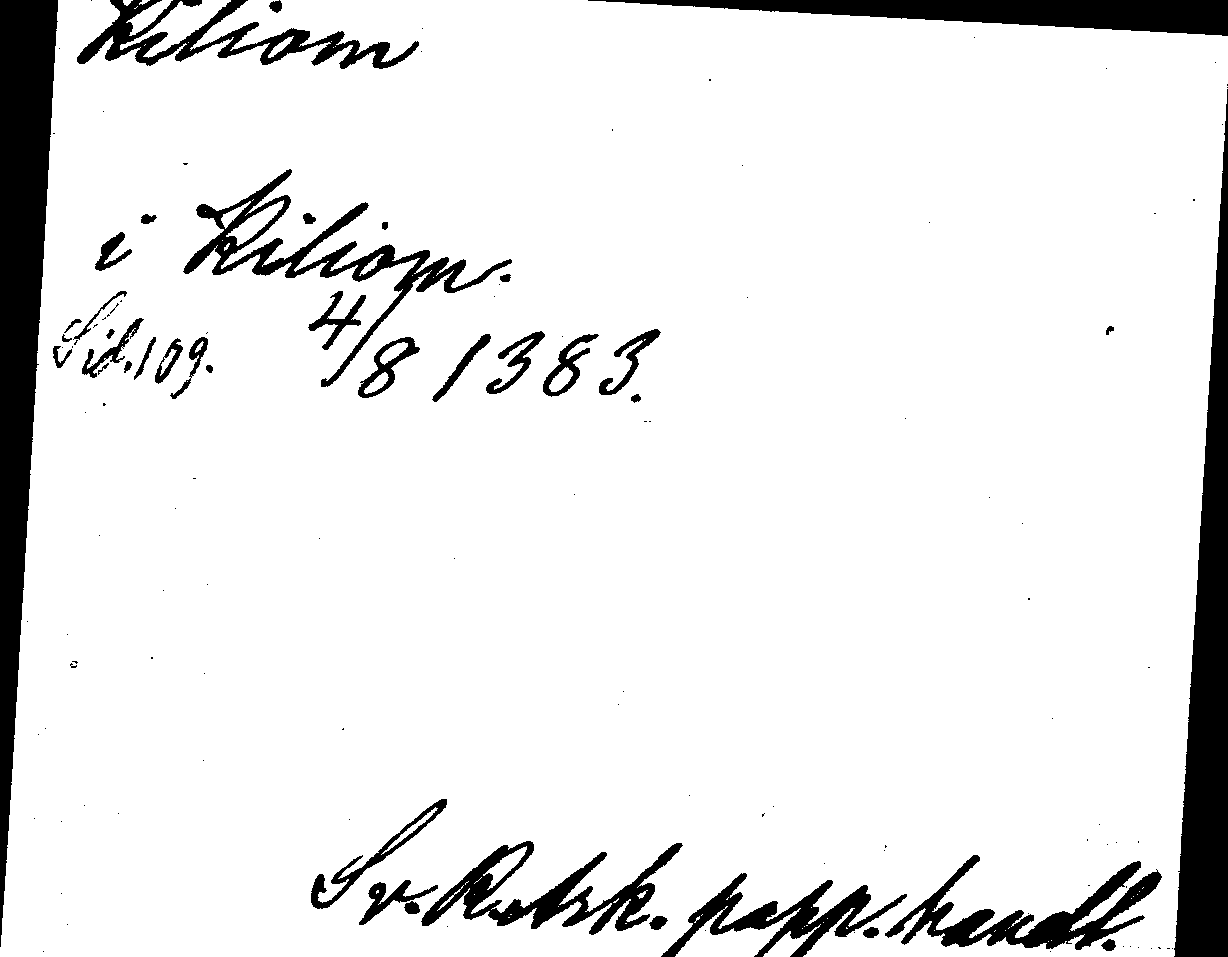 Kiliom
i Kiliom.
Sid. 109. 4/8 1383.
Sv. R. Ark. papp. handl.